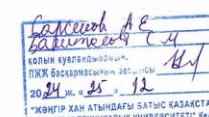 Сарсенов А Е
Бахиталова Е М
қолын куәландырамын.
ПЖЖ басқармасының
2024 ж. «25» 12
"ЖӘҢГІР ХАН АТЫНДАҒЫ БАТЫС ҚАЗАҚСТА
УНИВЕРСИТЕТІ"